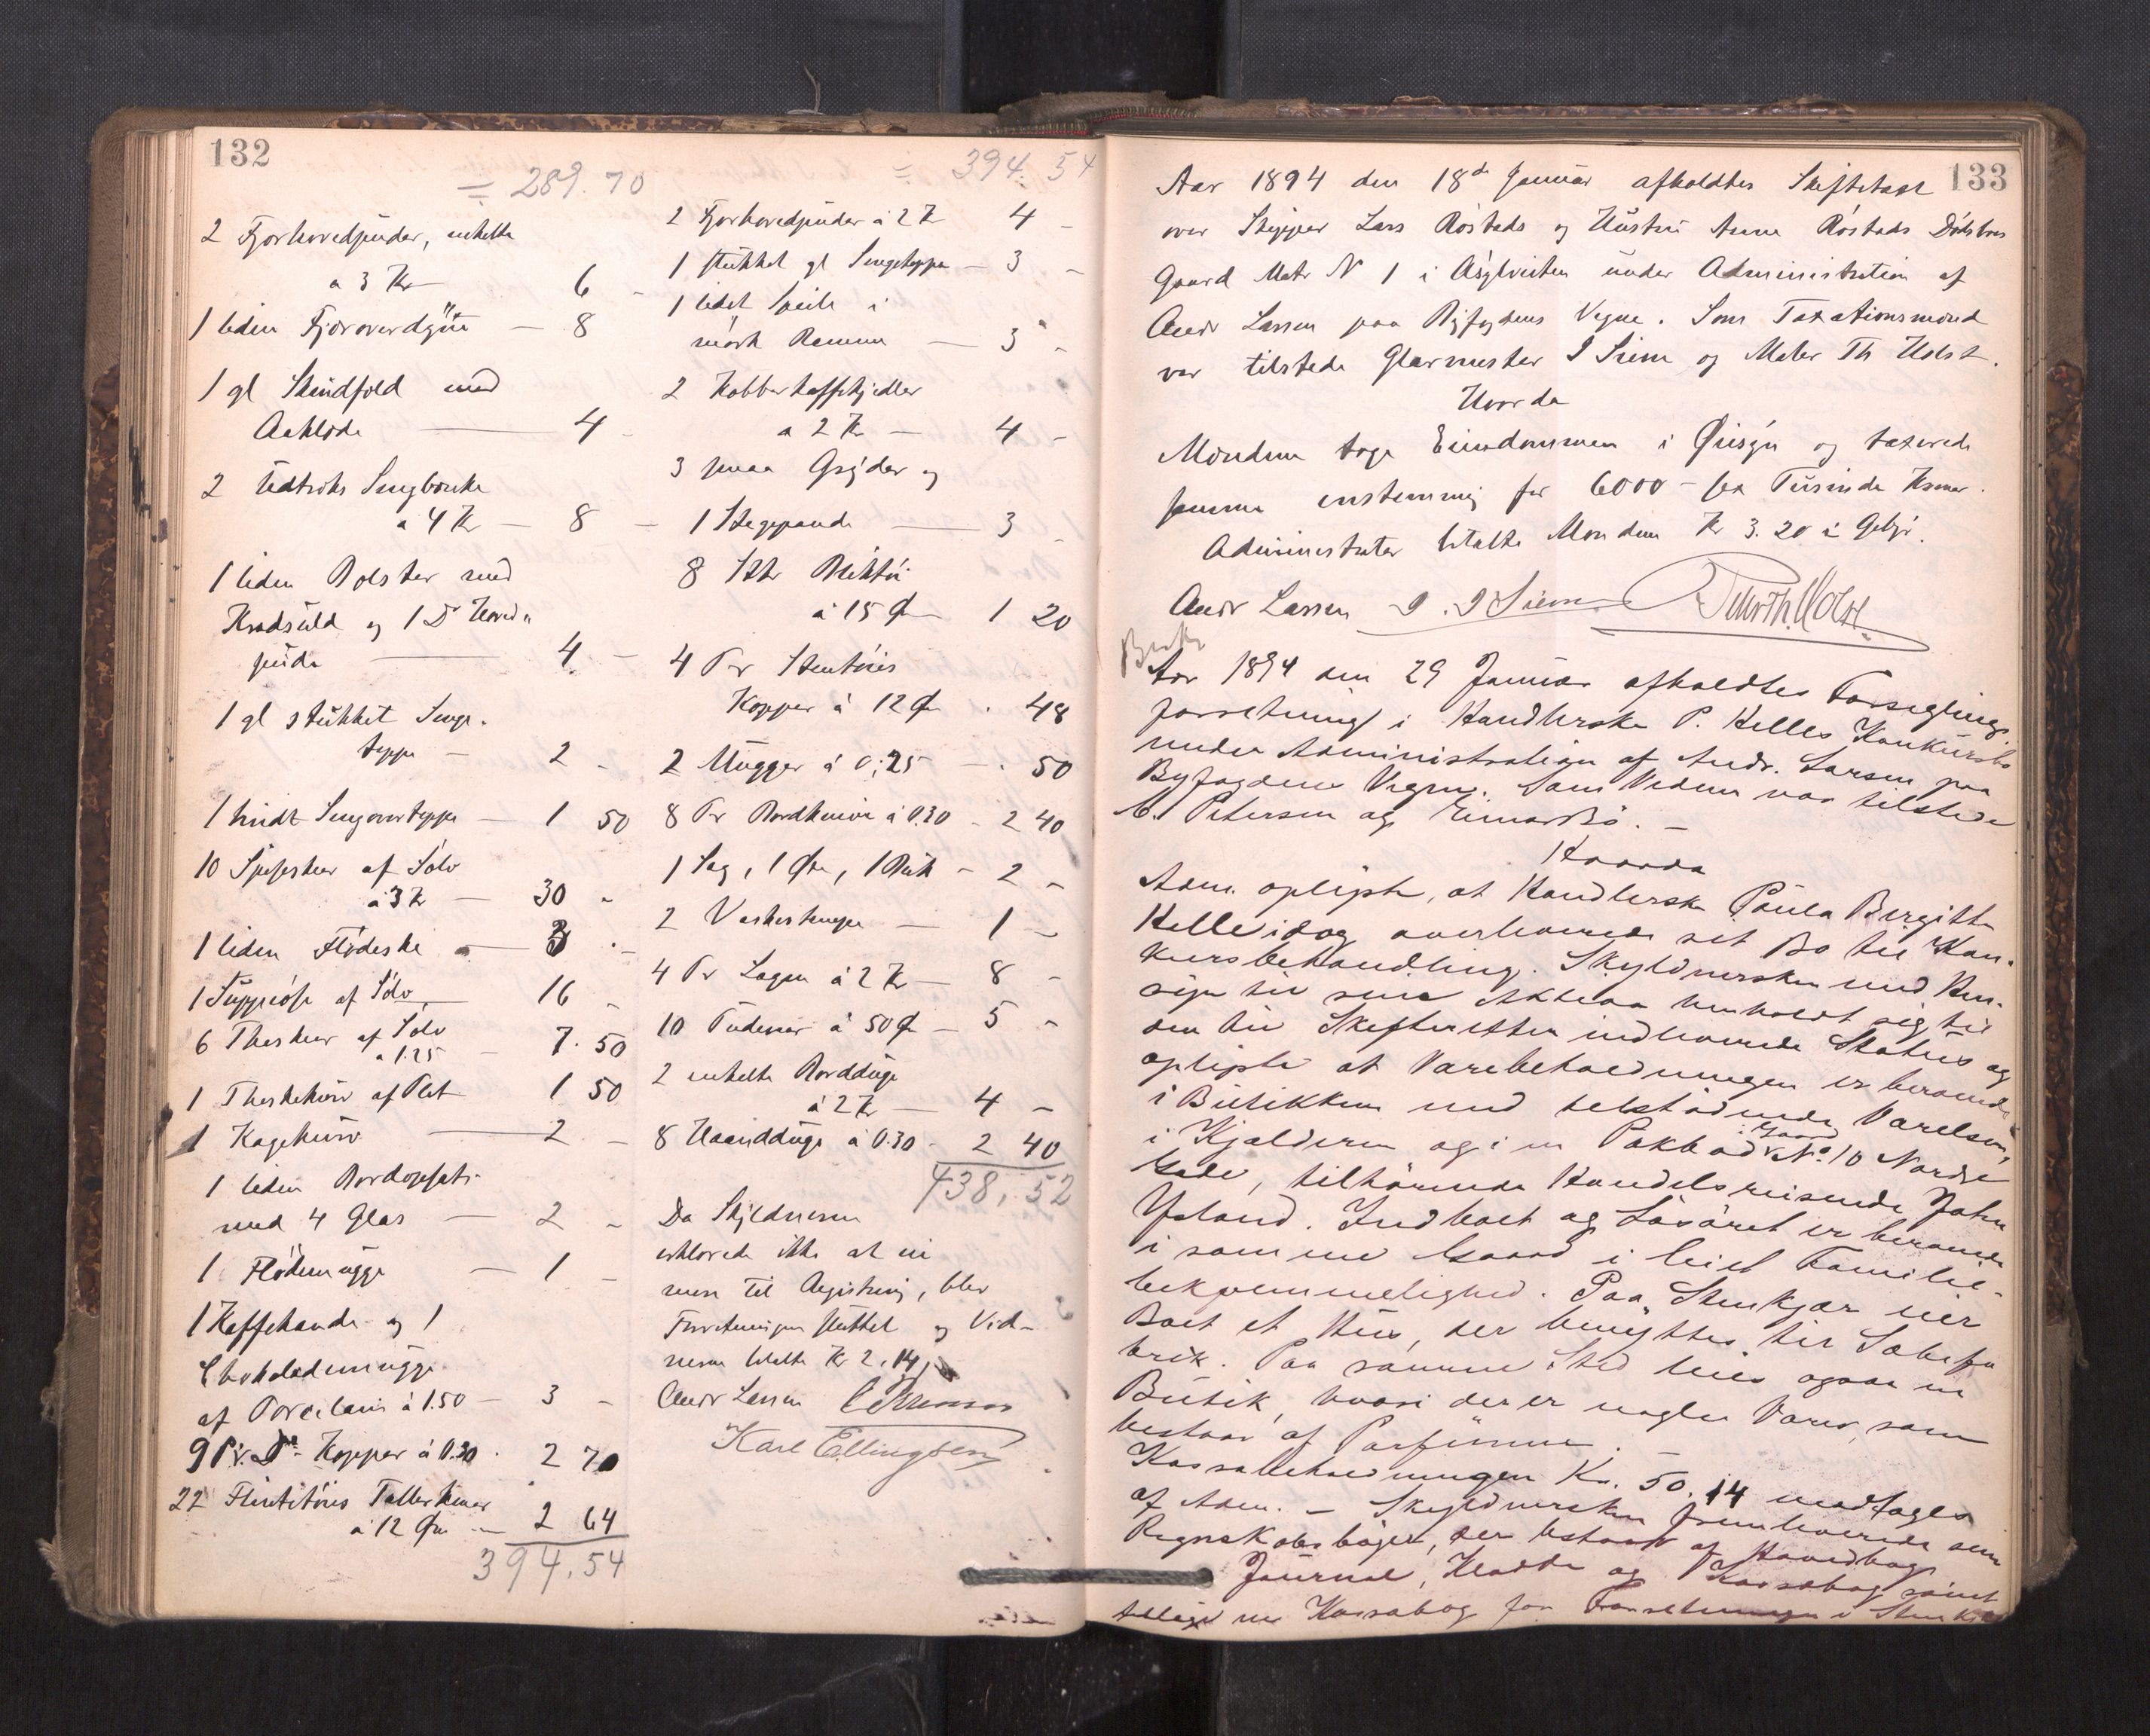 132
= 289.70
2 Fjorhovedpuder, enkelte
a 3 Kr 6 -
1 liden Fjoroverdyne - 8
1 gl Skindfeld med
Aaklæde - 4 -
2 Udtræks Sengbænke
a 4 Kr - 8 -
1 liden Bolster med
Krøduld og 1 Do Hoved
pude - 4 -
1 gl stukket Senge-
teppe - 2 -
1 hvidt Sengeovertæppe - 1 50
10 Spiseskeer af Sölv
à 3 Kr - 30 -
1 liden Flödeske - 3 -
1 Suppeöse af Sölv - 16 -
6 Theskeer af Sölv
a 1.25 - 7.50
1 Theskekurv af Plet 1 50
1 Kagekurv - 2 -
1 liden Bordopsats
med 4 Glas - 2 -
1 Flödemugge - 1 -
1 Kaffekande og 1
Chokolademugge
af Porcelain à 1.50 - 3 -
9 Pr. Do Kopper à 0.30 . 2 70
22 Flintetöis Tallerkener
a 12 Øre - 2 64
394.54
= 394.54
2 Fjorhovedpuder à 2 Kr 4 -
1 stukket gl Sengeteppe - 3 -
1 lidet Speile i
mörk Ramme - 3 -
2 Kobberkaffekjedler
a 2 Kr - 4 -
3 smaa Gryder og
1 Stegepande - 3 -
8 Stk Bliktöi
à 15 Ø 1 20
4 Pr Stentöis
Kopper à 12 Øre . 48
2 Mugger à 0,25 - . 50
8 Pr Bordknive à 0.30 - 2 40
1 Sag, 1 Øxe, 1 - 2 -
2 - 1 -
4 Pr Lagen à 2 Kr - 8 -
10 Pudevar à 50 Ø - 5 -
2 enkelte Borddüge
à 2 Kr - 4 -
8 Haanddüge à 0.30 - 2 40
438,52
Da Skyldneren
erklærede ikke at eie
mere til Registrering, blev
Forretningen sluttet og Vid-
nerne betalte Kr 2,14
Andr Larsen C Petersen
Karl Ellingsen
133
Aar 1894 den 18de Januar afholdtes Skiftetaxt
over Skipper Lars Röstads og Hustru Anne Röstads Dödsbos
Gaard Matr N 1 i under Administration af
Andr Larsen paa Byfogdens Vegne. Som Taxationsmænd
var tilstede Glarmester I Siem og Maler Th Holst.
Hvorda
Mændene toge Eiendommen i Øiesyn og taxerede
samme enstemmig for 6000 - sex Tusinde Kroner.
Administrator betalte Mændene Kr 3.20 i Gebyr.
Andr Larsen I. I Siem Th. Holst
Aar 1894 den 29 Januar afholdtes Forseglings-
forretning i Handlerske P. Helles Konkursbo
under Administration af Andr. Larsen paa
Byfogdens Vegne. Som Vidner var tilstede
C. Petersen og Einar Bö. -
Hvorda
Adm. oplyste, at Handlerske Paula Birgitte
Helle idag overleverede sit Bo til Kon-
kursbehandling. Skyldnersken med Hen-
syn til sine Aktiva henholdt sig til
den til Skifteretten indleverede Status og
oplyste at Varebeholdningen er beroende
i Butikken med tilstödende Varelser,
i Kjelderen og i en Pakbod i Gaard No 10 Nordre
Gade, tilhörende Handelsreisende John
Ystand. Indboet og Lösöret er beroende
i samme Gaard i leiet Familie-
bekvemmelighed. Paa Stenkjær eier
Boet et Hus, der benyttes til Sæbefa
brik. Paa samme Sted leies ogsaa en
Butik, hvori der er nogle Varer, som
bestaar af Parfume. -
Kassabeholdningen Kr. 50.14 modtoges
af Adm. - Skyldnersken fremleverede sine
Regnskabsböger, der bestaar af Hovedbog
Journal, Kladde og Kassabog samt
tillige en Kassabog for Forretningen i Stenkjær